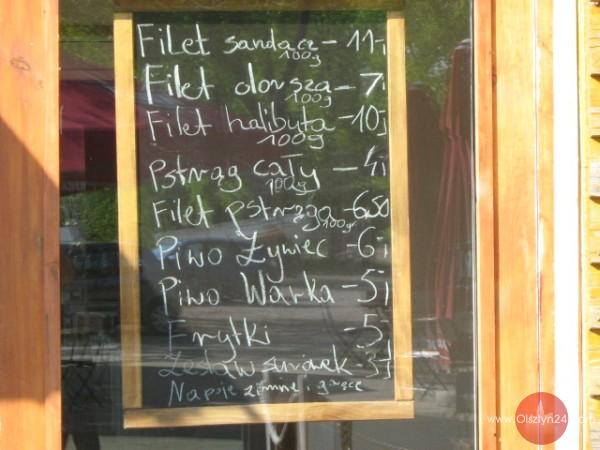 Filet sandacz - 11,-
100g
Filet dorsza - 7,-
100g
Filet halibuta - 10,-
100g
Pstrąg cały - 4,-
100g
Filet pstrąga - 6,50
100g
Piwo Żywiec - 6,-
Piwo Warka - 5,-
Frytki - 5,-
Zestaw surówek - 3,-
Napoje zimne i gorące
www.Olsztyn24.com